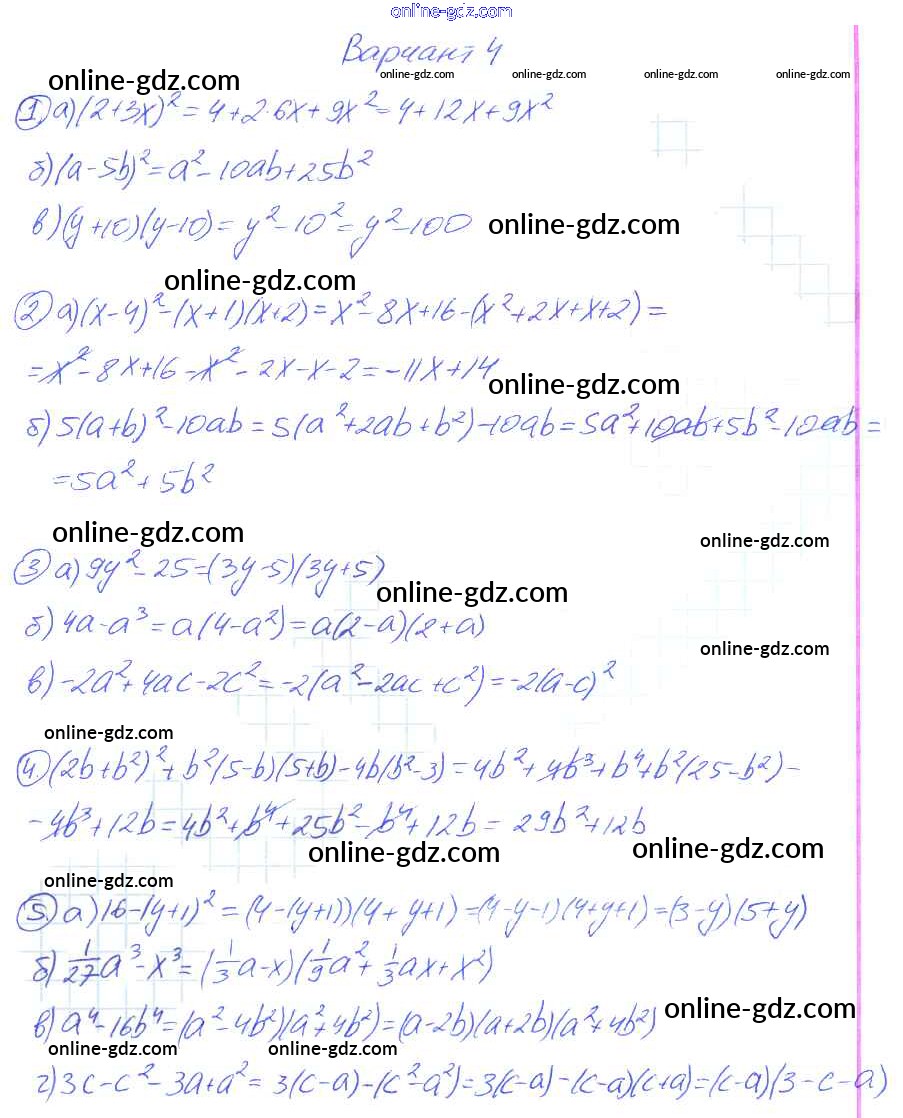 online-gdz.com
Вариант 4
online-gdz.com online-gdz.com online-gdz.com online-gdz.com online-gdz.com
① а) (2+3x)² = 4+2·6x+9x² = 4+12x+9x²
б) (a-5b)² = a²-10ab+25b²
в) (y+10)(y-10) = y²-10² = y²-100 online-gdz.com
online-gdz.com
② а) (x-4)²-(x+1)(x+2) = x²-8x+16-(x²+2x+x+2) =
= x²-8x+16-x²-2x-x-2 = -11x+14
online-gdz.com
б) 5(a+b)²-10ab = 5(a²+2ab+b²)-10ab = 5a²+10ab+5b²-10ab =
= 5a²+5b²
online-gdz.com online-gdz.com
③ а) 9y²-25 = (3y-5)(3y+5)
online-gdz.com
б) 4a-a³ = a(4-a²) = a(2-a)(2+a)
online-gdz.com
в) -2a²+4ac-2c² = -2(a²-2ac+c²) = -2(a-c)²
online-gdz.com
④ (2b+b²)²+b²(5-b)(5+b)-4b(b²-3) = 4b²+4b³+b⁴+b²(25-b²)-
-4b³+12b = 4b²+b⁴+25b²-b⁴+12b = 29b²+12b
online-gdz.com online-gdz.com
online-gdz.com
⑤ а) 16-(y+1)² = (4-(y+1))(4+y+1) = (4-y-1)(4+y+1) = (3-y)(5+y)
б) 1/27a³-x³ = (1/3a-x)(1/9a²+1/3ax+x²)
в) a⁴-16b⁴ = (a²-4b²)(a²+4b²) = (a-2b)(a+2b)(a²+4b²) online-gdz.com
online-gdz.com online-gdz.com
г) 3c-c²-3a+a² = 3(c-a)-(c²-a²) = 3(c-a)-(c-a)(c+a) = (c-a)(3-c-a)